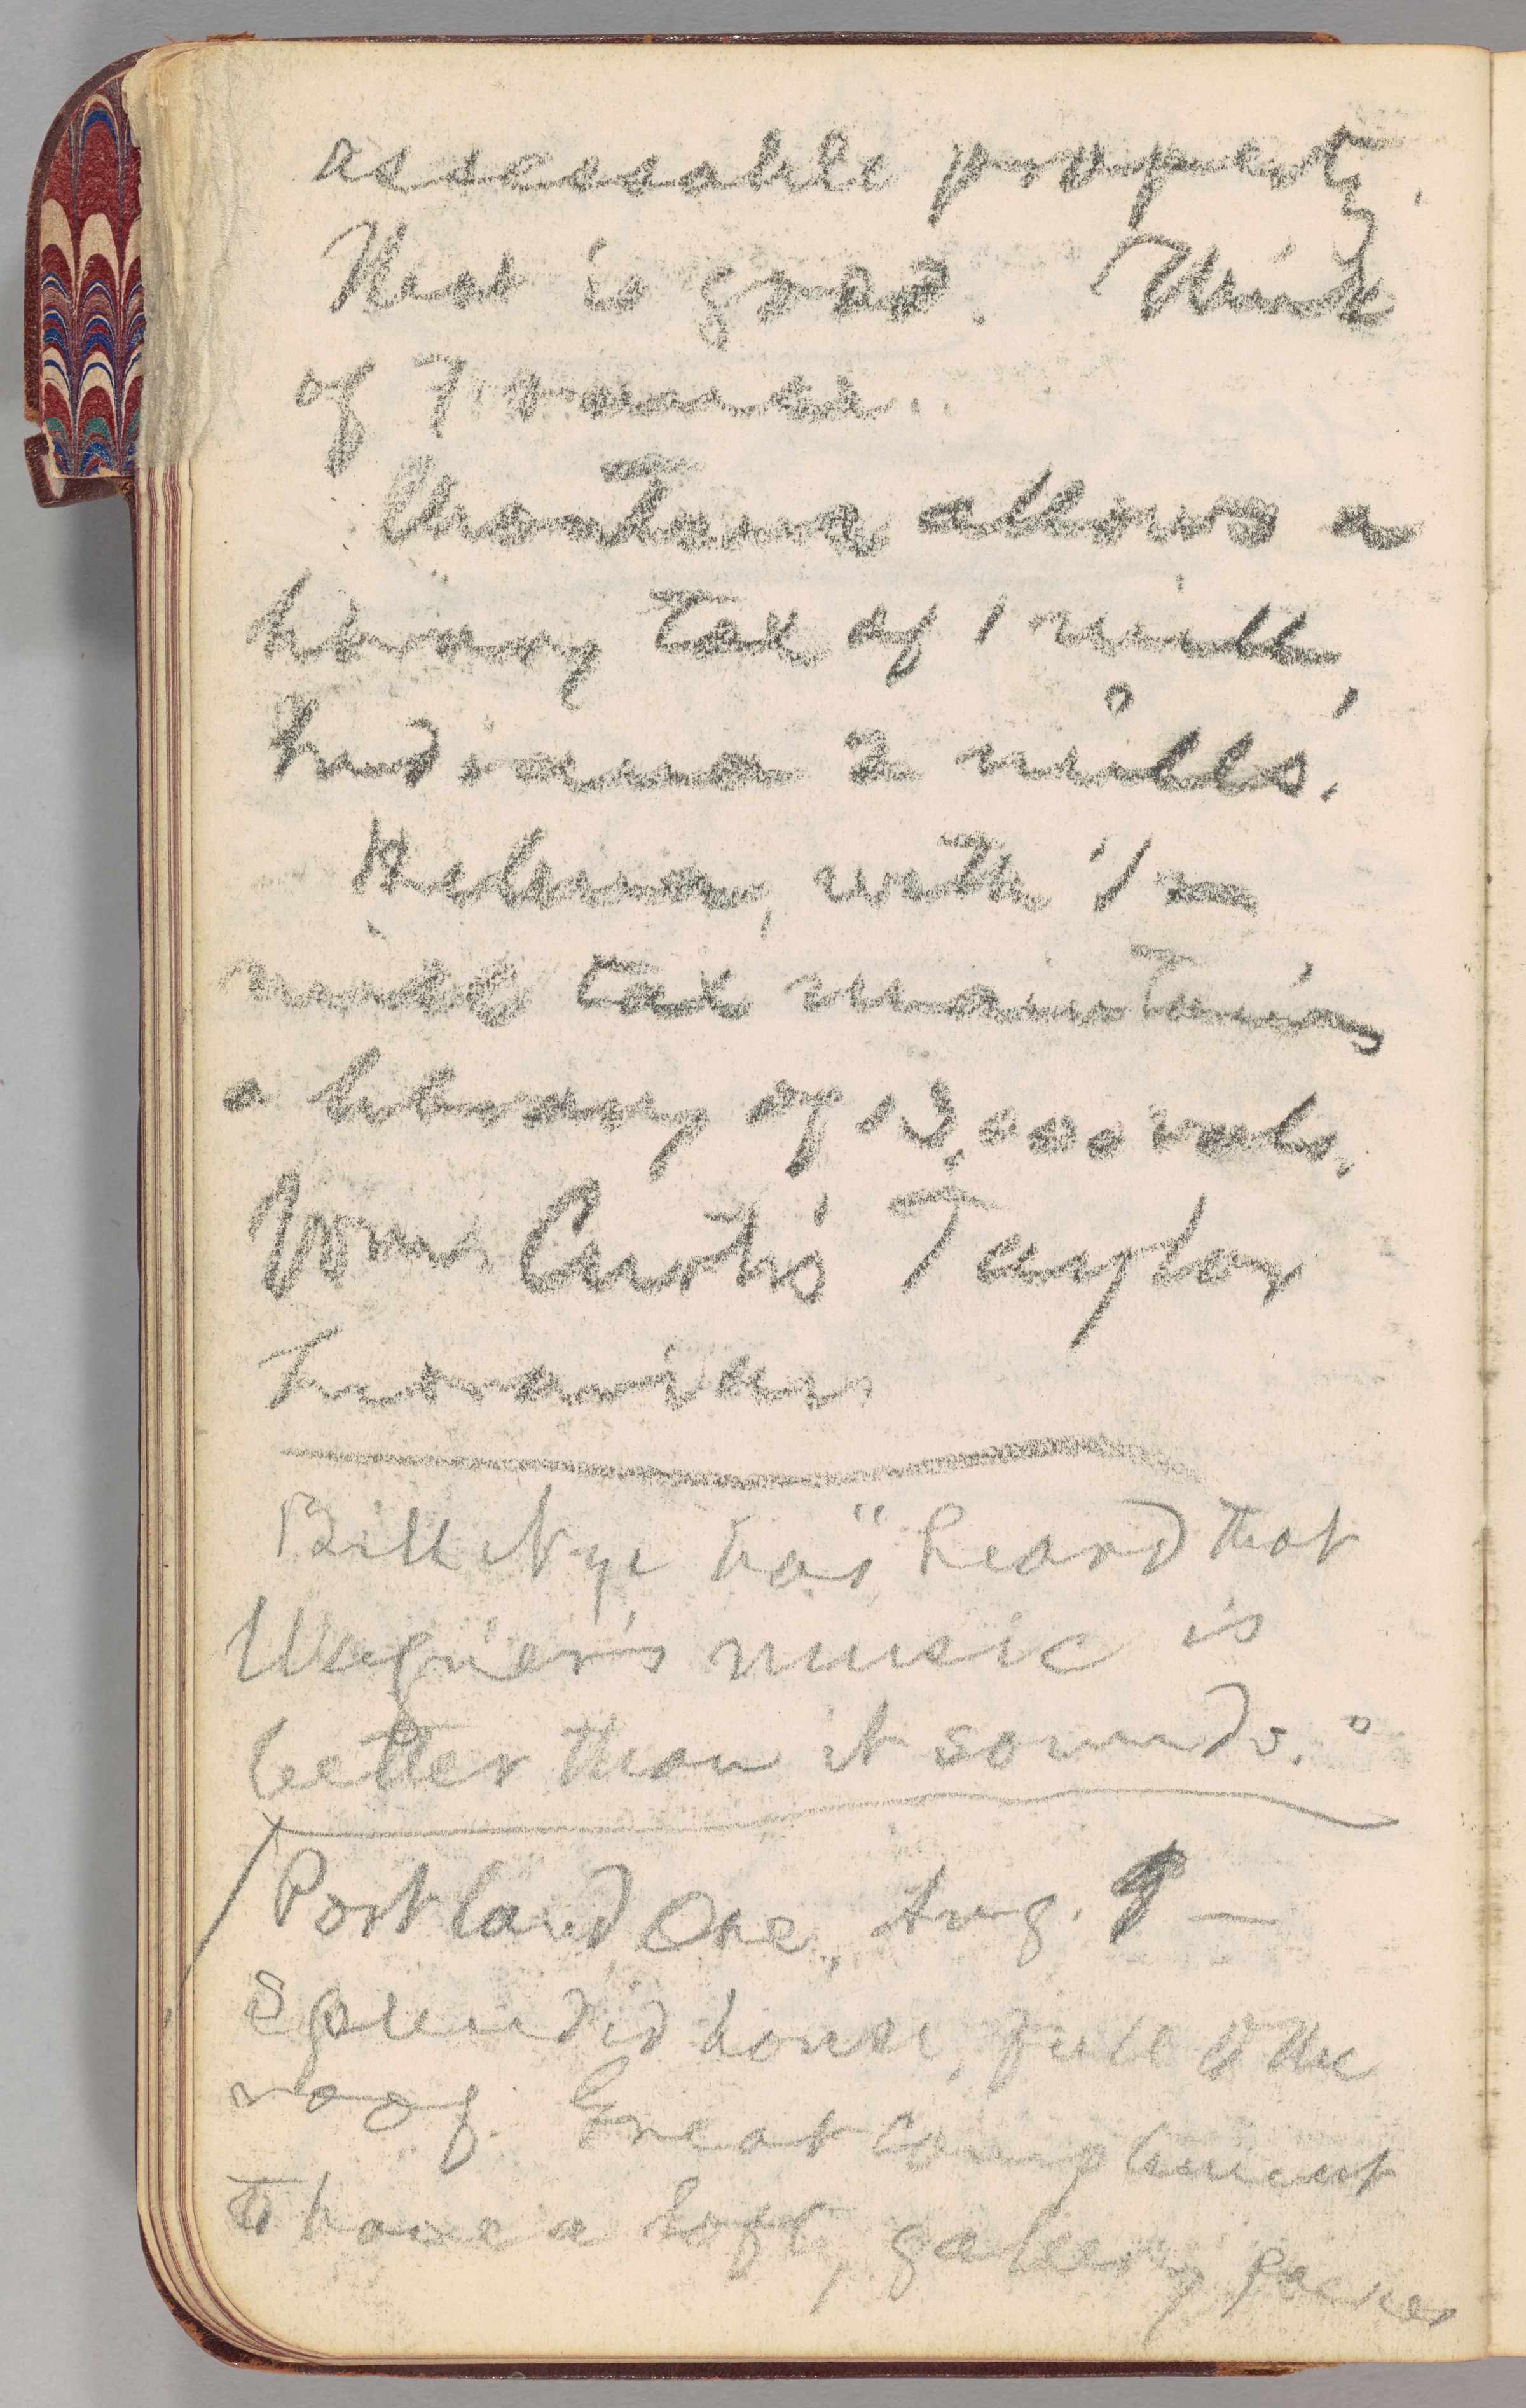 assessable property.
That is good. Think
of 7 nurses.
Montana allows a
library tax of 1 mill,
Indiana 2 mills.
Helena, with 1/2
mill tax maintains
a library of 12,000 vols.
Curtis Taylor
Librarian
Bill Nye has "heard that
Wagner's music is
better than it sounds."
Portland Ore, Aug. 9 —
Splendid house, full to the
roof. Great compliment
to have a lofty gallery packed